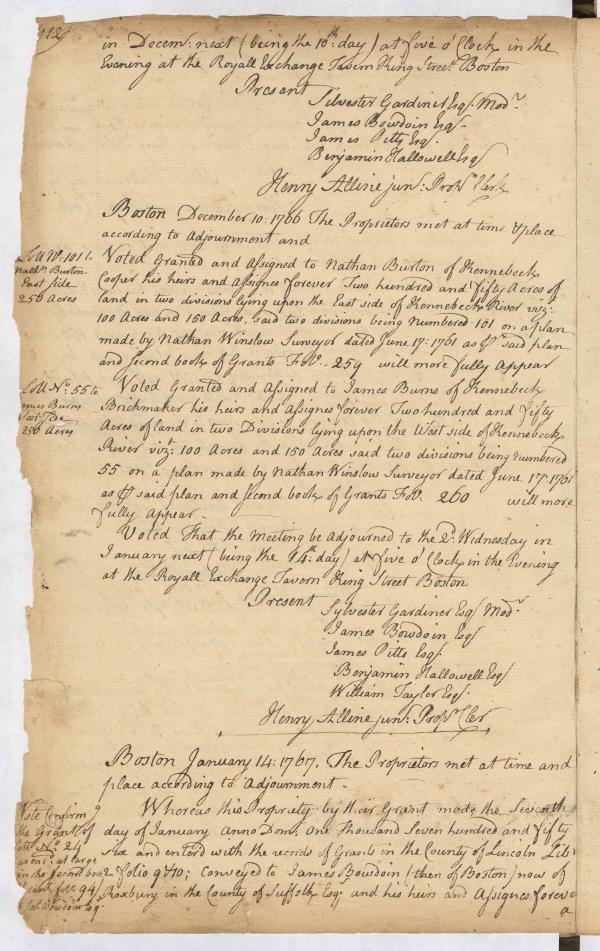 112
in Decemr: next (being the 10th: day) at five o'Clock in the
Evening at the Royall Exchange Tavern King Street Boston
Present
Silvester Gardiner Esq. Modr.
James Bowdoin Esq.
James Pitts Esq.
Benjamin Hallowell Esq
Henry Alline junr. Propr. Clerk
Boston December 10: 1766 The Proprietors met at time & place
according to Adjournment and
Lott No. 101 L.
Nathn. Burton
East side
250 Acres
Voted Granted and Assigned to Nathan Burton of Kennebeck
Cooper his heirs and Assignes forever Two hundred and fifty Acres of
land in two divisions lying upon the East side of Kennebeck River viz:
100 Acres and 150 Acres, said two divisions being Numbered 101 on a plan
made by Nathan Winslow Surveyor dated June 17: 1761 as pr. said plan
and second book of Grants Fol. 259 will more fully Appear
Lott No. 55 to
James Burns
West Side
250 Acres
Voted Granted and Assigned to James Burns of Kennebeck
Brickmaker his heirs and Assignes forever Two hundred and fifty
Acres of land in two Divisions lying upon the West side of Kennebeck
River vizt: 100 Acres and 150 Acres said two divisions being numbered
55 on a plan made by Nathan Winslow Surveyor dated June 17: 1761
as pr said plan and second book of Grants Fol. 260 will more
fully Appear.
Voted That the Meeting be Adjourned to the 2d. Widnesday in
January next (being the 14th: day) at five o'Clock in the Evening
at the Royall Exchange Tavern King Street Boston
Present
Sylvester Gardiner Esq Modr.
James Bowdoin Esq
James Pitts Esq.
Benjamin Hallowell Esq
William Tayler Esq.
Henry Alline junr. Propr. Cler
Boston January 14: 1767. The Proprietors met at time and
place according to Adjournment.
Vote Confirm g
the Grant of
Lott No. 24
as ent. at large
in the second book
Grants fol. 94
Jas. Bowdoin Esq.
Whereas this Propriety by their Grant made the Seventh
day of January Anno Dom. One Thousand Seven hundred and fifty
six and enterd with the records of Grants in the County of Lincoln Lib
2 folio 9 & 10; Conveyed to James Bowdoin (then of Boston) now of
Roxbury in the County of Suffolk Esq. and his heirs and Assignes foreve
a